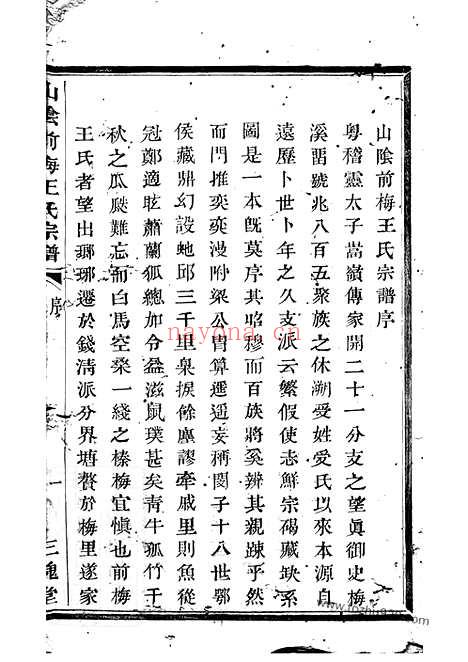 山陰前梅王氏宗譜序
粵稽靈太子嵩嶺傳家開二十一分支之望眞御史梅
溪畱號兆八百五聚族之休溯受姓受氏以來本源自
遠歷卜世卜年之久支派云繁假使志鮮宗碣藏缺系
圖是一本旣莫序其昭穆而百族將奚辨其親踈乎然
而門推奕奕漫附梁公胄算遞遞妄稱閔子十八世鄂
侯藏鼎幻設虵邱三千里臬捩餘塵謬牽戚里則魚從
冠鄭適眩蕭蘭狐總加令益滋鼠璞甚矣靑牛孤竹千
秋之瓜瓞難忘而白馬空桑一綫之榛梅宜愼也前梅
王氏者望出瑯琊遷於錢淸派分界塘贅於梅里遂家
山陰前梅王氏宗譜
序
一
三槐堂
nayona.cn